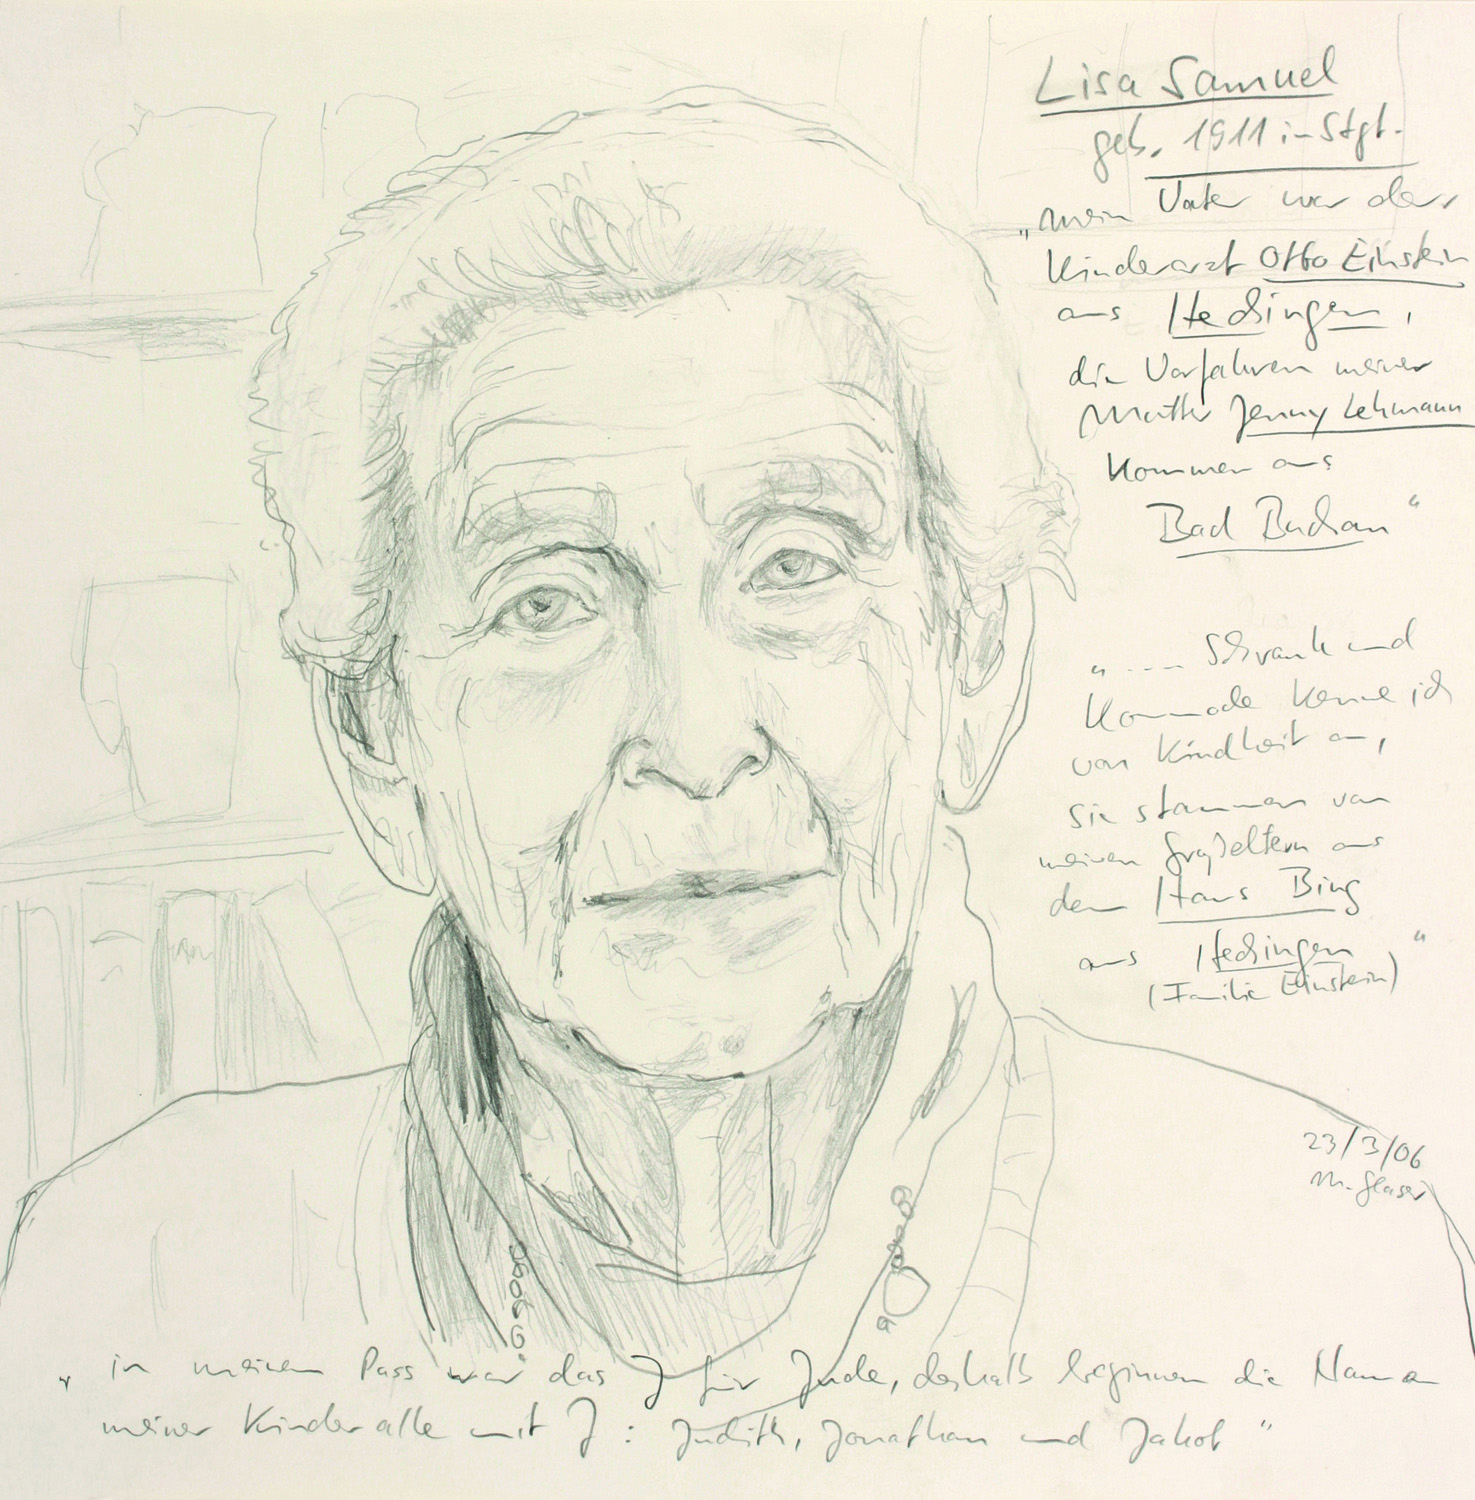 Lisa Samuel
geb. 1911 in Stgt.
„mein Vater war der
Kinderarzt Otto Einstein
aus Hechingen,
die Vorfahren meiner
Mutter Jenny Lehmann
kommen aus
Bad Buchau“
„.... Schrank und
Kommode kenne ich
von Kindheit an,
sie stammen von
meinen Großeltern aus
dem Haus Bing
aus Hechingen“
(Familie Einstein)
23/3/06
M. Glaser
„in meinem Pass war das J für Jude, deshalb beginnen die Namen
meiner Kinder alle mit J : Judith, Jonathan und Jakob“